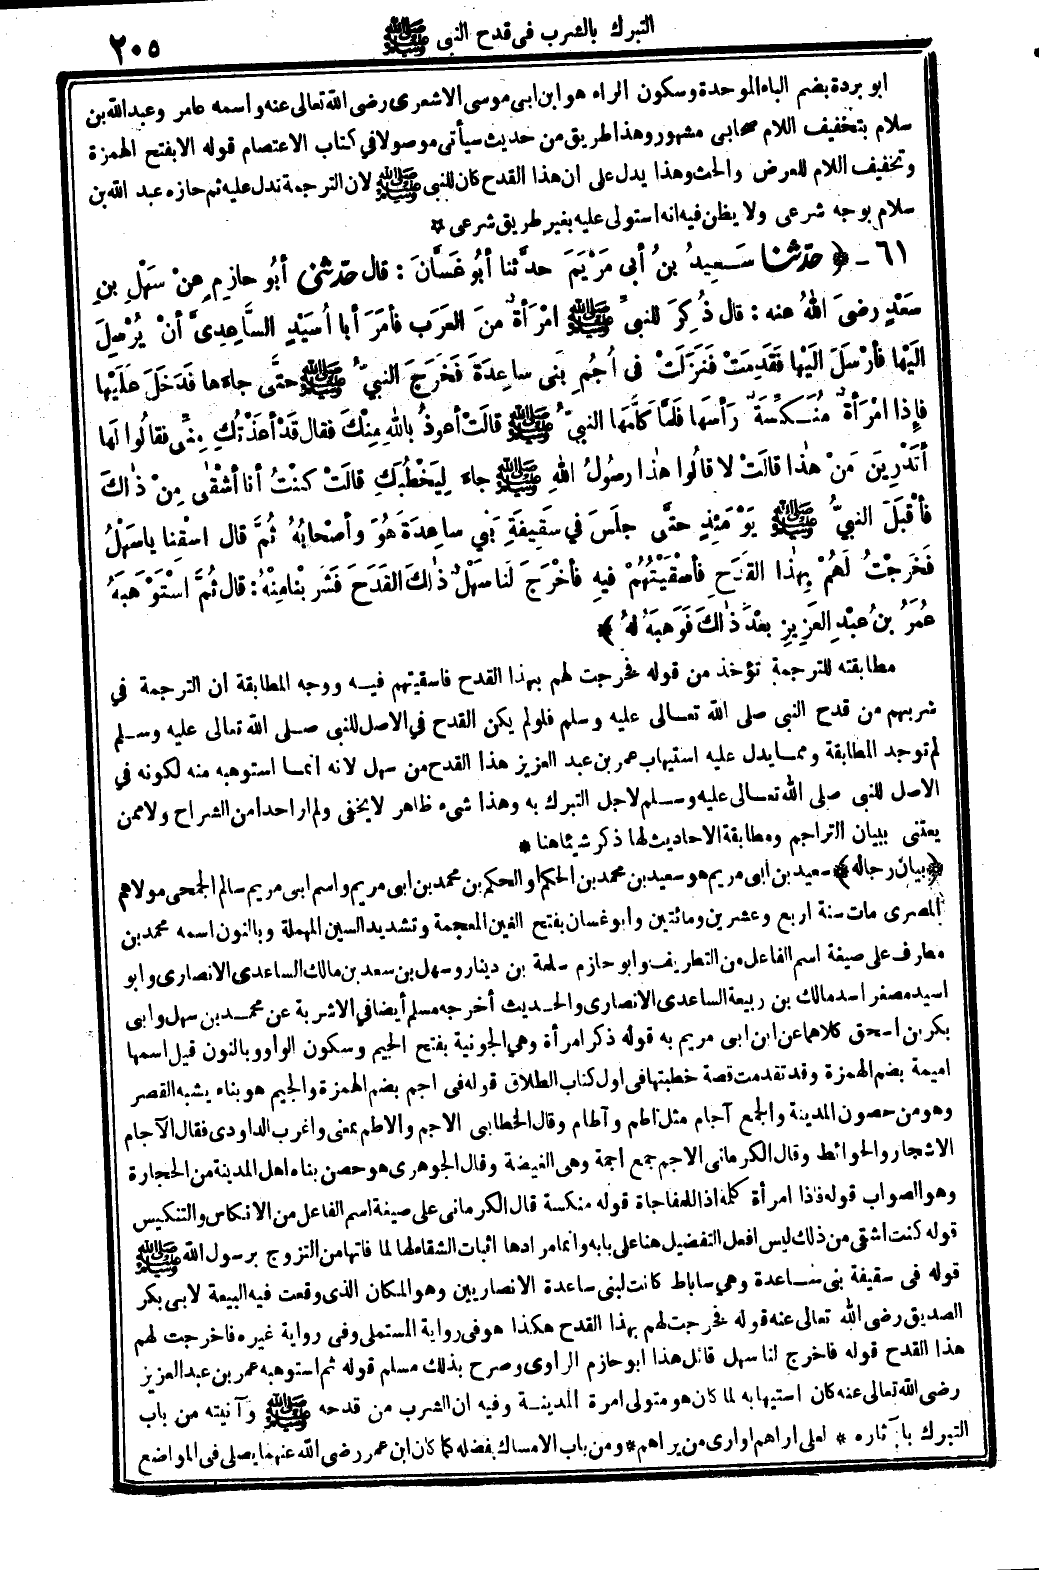 التبرك بالشرب فى قدح النبى ﷺ
٢٠٥
ابو بردة بضم الباء الموحدة وسكون الراء هو ابن ابى موسى الاشعرى رضى الله تعالى عنه واسمه عامر وعبد الله بن
سلام بتخفيف اللام صحابى مشهور وهذا طريق من حديث سيأتى موصولا في كتاب الاعتصام قوله الا بفتح الهمزة
وتخفيف اللام للعرض والحث وهذا يدل على ان هذا القدح كان للنبى ﷺ لان الترجمة تدل عليه ثم حازه عبد الله بن
سلام بوجه شرعى ولا يظن فيه انه استولى عليه بغير طريق شرعى *
٦١ - ﴿ حَدَّثنا سَعِيدُ بنُ أبي مَرْيَمَ حدَّثنا أبُو غَسَّانَ : قال حَدَّثنى أبُو حازِمٍ عنْ سَهْلِ بنِ
سَعْدٍ رضىَ اللهُ عنه : قال ذُكِرَ للنبىِّ ﷺ امْرَأةٌ منَ العَرَبِ فأمَرَ أبا أُسَيْدٍ السَّاعِدِىَّ أنْ يُرْسِلَ
الَيْها فأرْسَلَ الَيْها فَقَدِمَتْ فَنَزَلَتْ فى أُجُمِ بَنى ساعِدَةَ فَخَرَجَ النبىُّ ﷺ حتَّى جاءها فَدَخَلَ عَلَيْها
فإِذا امْرَأةٌ مُنَكِّسَةٌ رَأسَها فَلَمَّا كَلَّمَها النبىُّ ﷺ قالَتْ أعوذُ باللهِ مِنْكَ فقال قَدْ أعَذْتُكِ مِنِّى فقالُوا لها
أتَدْرِينَ مَنْ هٰذا قالَتْ لا قالُوا هٰذا رسُولُ اللهِ ﷺ جاءَ لِيَخْطُبَكِ قالَتْ كُنْتُ أنا أشْقٰى مِنْ ذٰلكَ
فأقْبَلَ النبيُّ ﷺ يَوْمَئِذٍ حتَّى جلَسَ في سَقِيفَةِ بَنِي ساعِدَةَ هُوَ وأصْحابُهُ ثُمَّ قال اسْقِنا ياسَهْلُ
فَخَرَجْتُ لَهُمْ بِهٰذا القَدَحِ فأسْقَيْتُهُمْ فيهِ فأخْرَجَ لَنا سَهْلٌ ذٰلكَ القَدَحَ فَشَرِبْنا مِنْهُ : قال ثُمَّ اسْتَوْهَبَهُ
عُمَرُ بنُ عبْدِ العَزِيزِ بعْدَ ذٰلكَ فَوَهبَهُ لهُ ﴾ *
مطابقته للترجمة تؤخذ من قوله فخرجت لهم بهذا القدح فاسقيتهم فيه ووجه المطابقة ان الترجمة في
شربهم من قدح النبى صلى الله تعالى عليه وسلم فلو لم يكن القدح في الاصل للنبى صلى الله تعالى عليه وسلم
لم توجد المطابقة ومما يدل عليه استيهاب عمر بن عبد العزيز هذا القدح من سهل لانه انما استوهبه منه لكونه في
الاصل للنبى صلى الله تعالى عليه وسلم لاجل التبرك به وهذا شىء ظاهر لا يخفى ولم ار احدا من الشراح ولا ممن
يعتنى ببيان التراجم ومطابقة الاحاديث لها ذكر شيئا هنا *
﴿ بيان رجاله ﴾ سعيد بن ابى مريم هو سعيد بن محمد بن الحكم او الحكم بن محمد بن ابى مريم واسم ابى مريم سالم الجمحى مولاهم
المصرى مات سنة اربع وعشرين ومائتين وابو غسان بفتح الغين المعجمة وتشديد السين المهملة وبالنون اسمه محمد بن
مطرف على صيغة اسم الفاعل من التطريف وابو حازم سلمة بن دينار وسهل بن سعد بن مالك الساعدى الانصارى وابو
اسيد مصغر اسد مالك بن ربيعة الساعدى الانصارى والحديث أخرجه مسلم أيضا في الاشربة عن محمد بن سهل وابى
بكر بن اسحق كلاهما عن ابن ابى مريم به قوله ذكر امرأة وهي الجونية بفتح الجيم وسكون الواو وبالنون قيل اسمها
اميمة بضم الهمزة وقد تقدمت قصة خطبتها فى اول كتاب الطلاق قوله فى اجم بضم الهمزة والجيم هو بناء يشبه القصر
وهو من حصون المدينة والجمع آجام مثل أطم وآطام وقال الخطابى الاجم والاطم بمعنى واغرب الداودى فقال الآجام
الاشجار والحوائط وقال الكرمانى الاجم جمع اجمة وهى الغيضة وقال الجوهرى هو حصن بناه اهل المدينة من الحجارة
وهو الصواب قوله فاذا امرأة كلمة اذا للمفاجاة قوله منكسة قال الكرمانى على صيغة اسم الفاعل من الانكاس والتنكيس
قوله كنت اشقى من ذلك ليس افعل التفضيل هنا على بابه وانما مرادها اثبات الشقاء لها لما فاتها من التزوج برسول الله ﷺ
قوله فى سقيفة بنى ساعدة وهي ساباط كانت لبنى ساعدة الانصاريين وهو المكان الذى وقعت فيه البيعة لابى بكر
الصديق رضى الله تعالى عنه قوله فخرجت لهم بهذا القدح هكذا هو فى رواية المستملى وفى رواية غيره فاخرجت لهم
هذا القدح قوله فاخرج لنا سهل قائل هذا ابو حازم الراوى وصرح بذلك مسلم قوله ثم استوهبه عمر بن عبد العزيز
رضى الله تعالى عنه كان استيهابه لما كان هو متولى امرة المدينة وفيه ان الشرب من قدحه ﷺ وآنيته من باب
التبرك بآثاره * لعلى اراهم او ارى من يراهم * ومن باب الامساك بفضله كما كان ابن عمر رضى الله عنهما يصلى فى المواضع